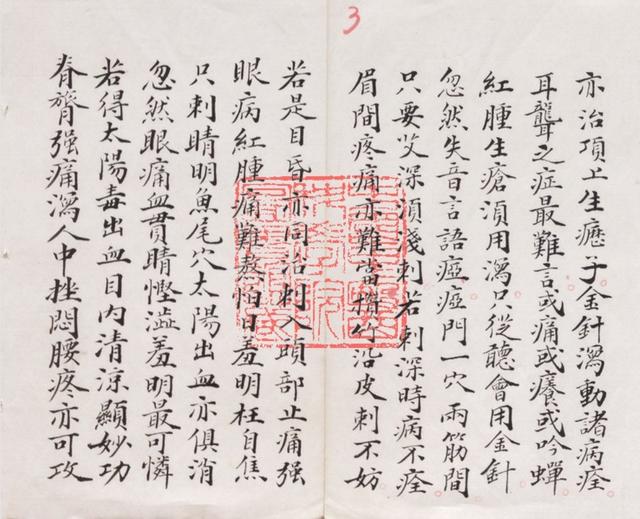 3
亦治項上生癧子金針瀉動諸病痊
耳聾之症最難言或痛或癢或吟蟬
紅腫生瘡須用瀉只從聽會用金針
忽然失音言語瘂瘂門一穴兩筋間
只要艾深須淺刺若刺深時病不痊
眉間疼痛亦難當攢竹沿皮刺不妨
若是目昏亦同治刺入頭部止痛强
眼病紅腫痛難熬怕日羞明枉自焦
只刺睛明魚尾穴太陽出血亦俱消
忽然眼痛血貫睛慳澁羞明最可憐
若得太陽毒出血目內清涼顯妙功
脊膂强痛瀉人中挫悶腰疼亦可攻